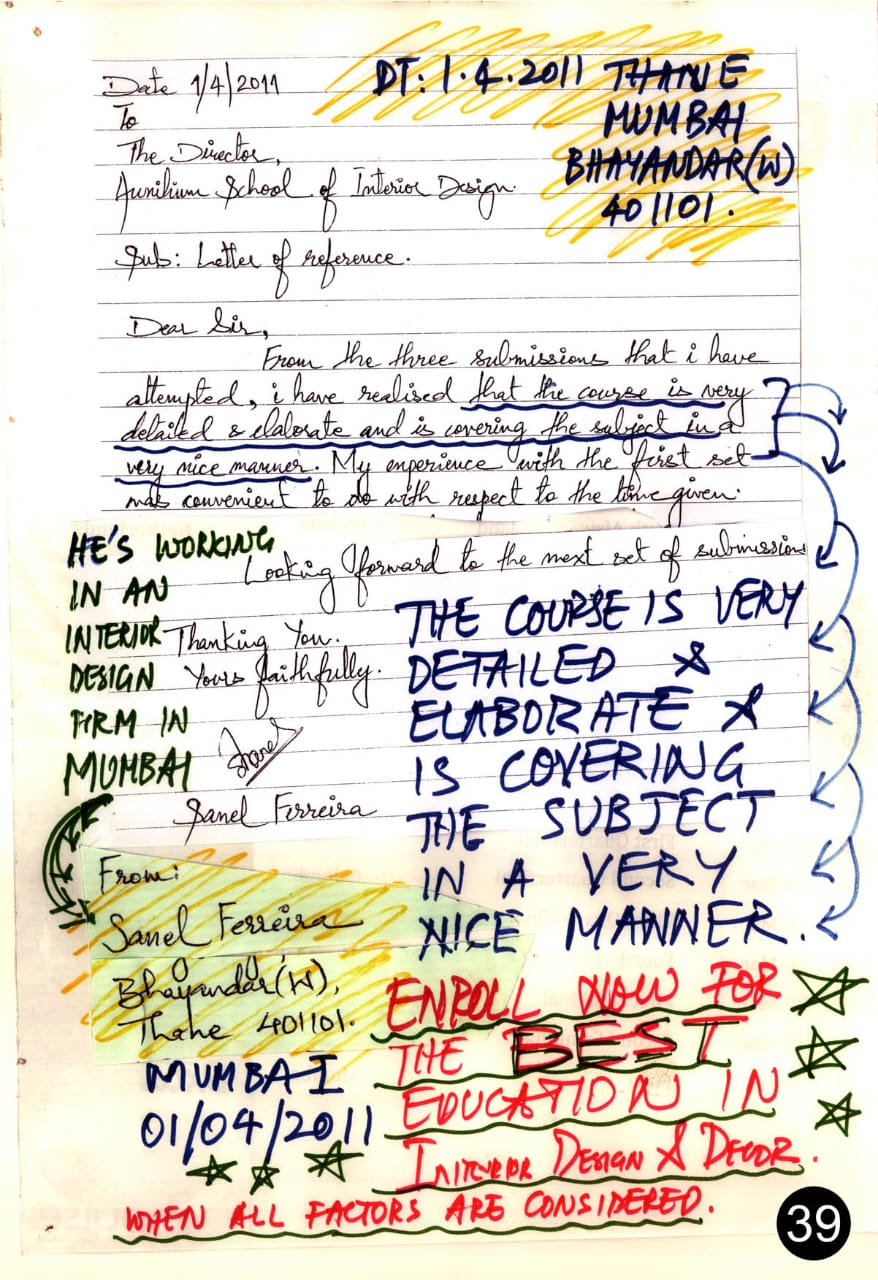 Date 1/4/2011
DT: 1.4.2011 THANE
MUMBAI
BHAYANDAR(W)
401101.
To
The Director,
Aunilium School of Interior Design.
Sub: Letter of reference.
Dear Sir,
From the three submissions that i have
attempted, i have realised that the course is very
detailed & elaborate and is covering the subject in a
very nice manner. My experience with the first set
was convenient to do with respect to the time given.
Looking forward to the next set of submission
Thanking You.
Yours faithfully.
Sanel Ferreira
HE'S WORKING
IN AN
INTERIOR
DESIGN
FIRM IN
MUMBAI
THE COURSE IS VERY
DETAILED &
ELABORATE &
IS COVERING
THE SUBJECT
IN A VERY
NICE MANNER.
From:
Sanel Ferreira
Bhayandar(W),
Thane 401101.
MUMBAI
01/04/2011
ENROLL NOW FOR
THE BEST
EDUCATION IN
INTERIOR DESIGN & DECOR.
WHEN ALL FACTORS ARE CONSIDERED.
39